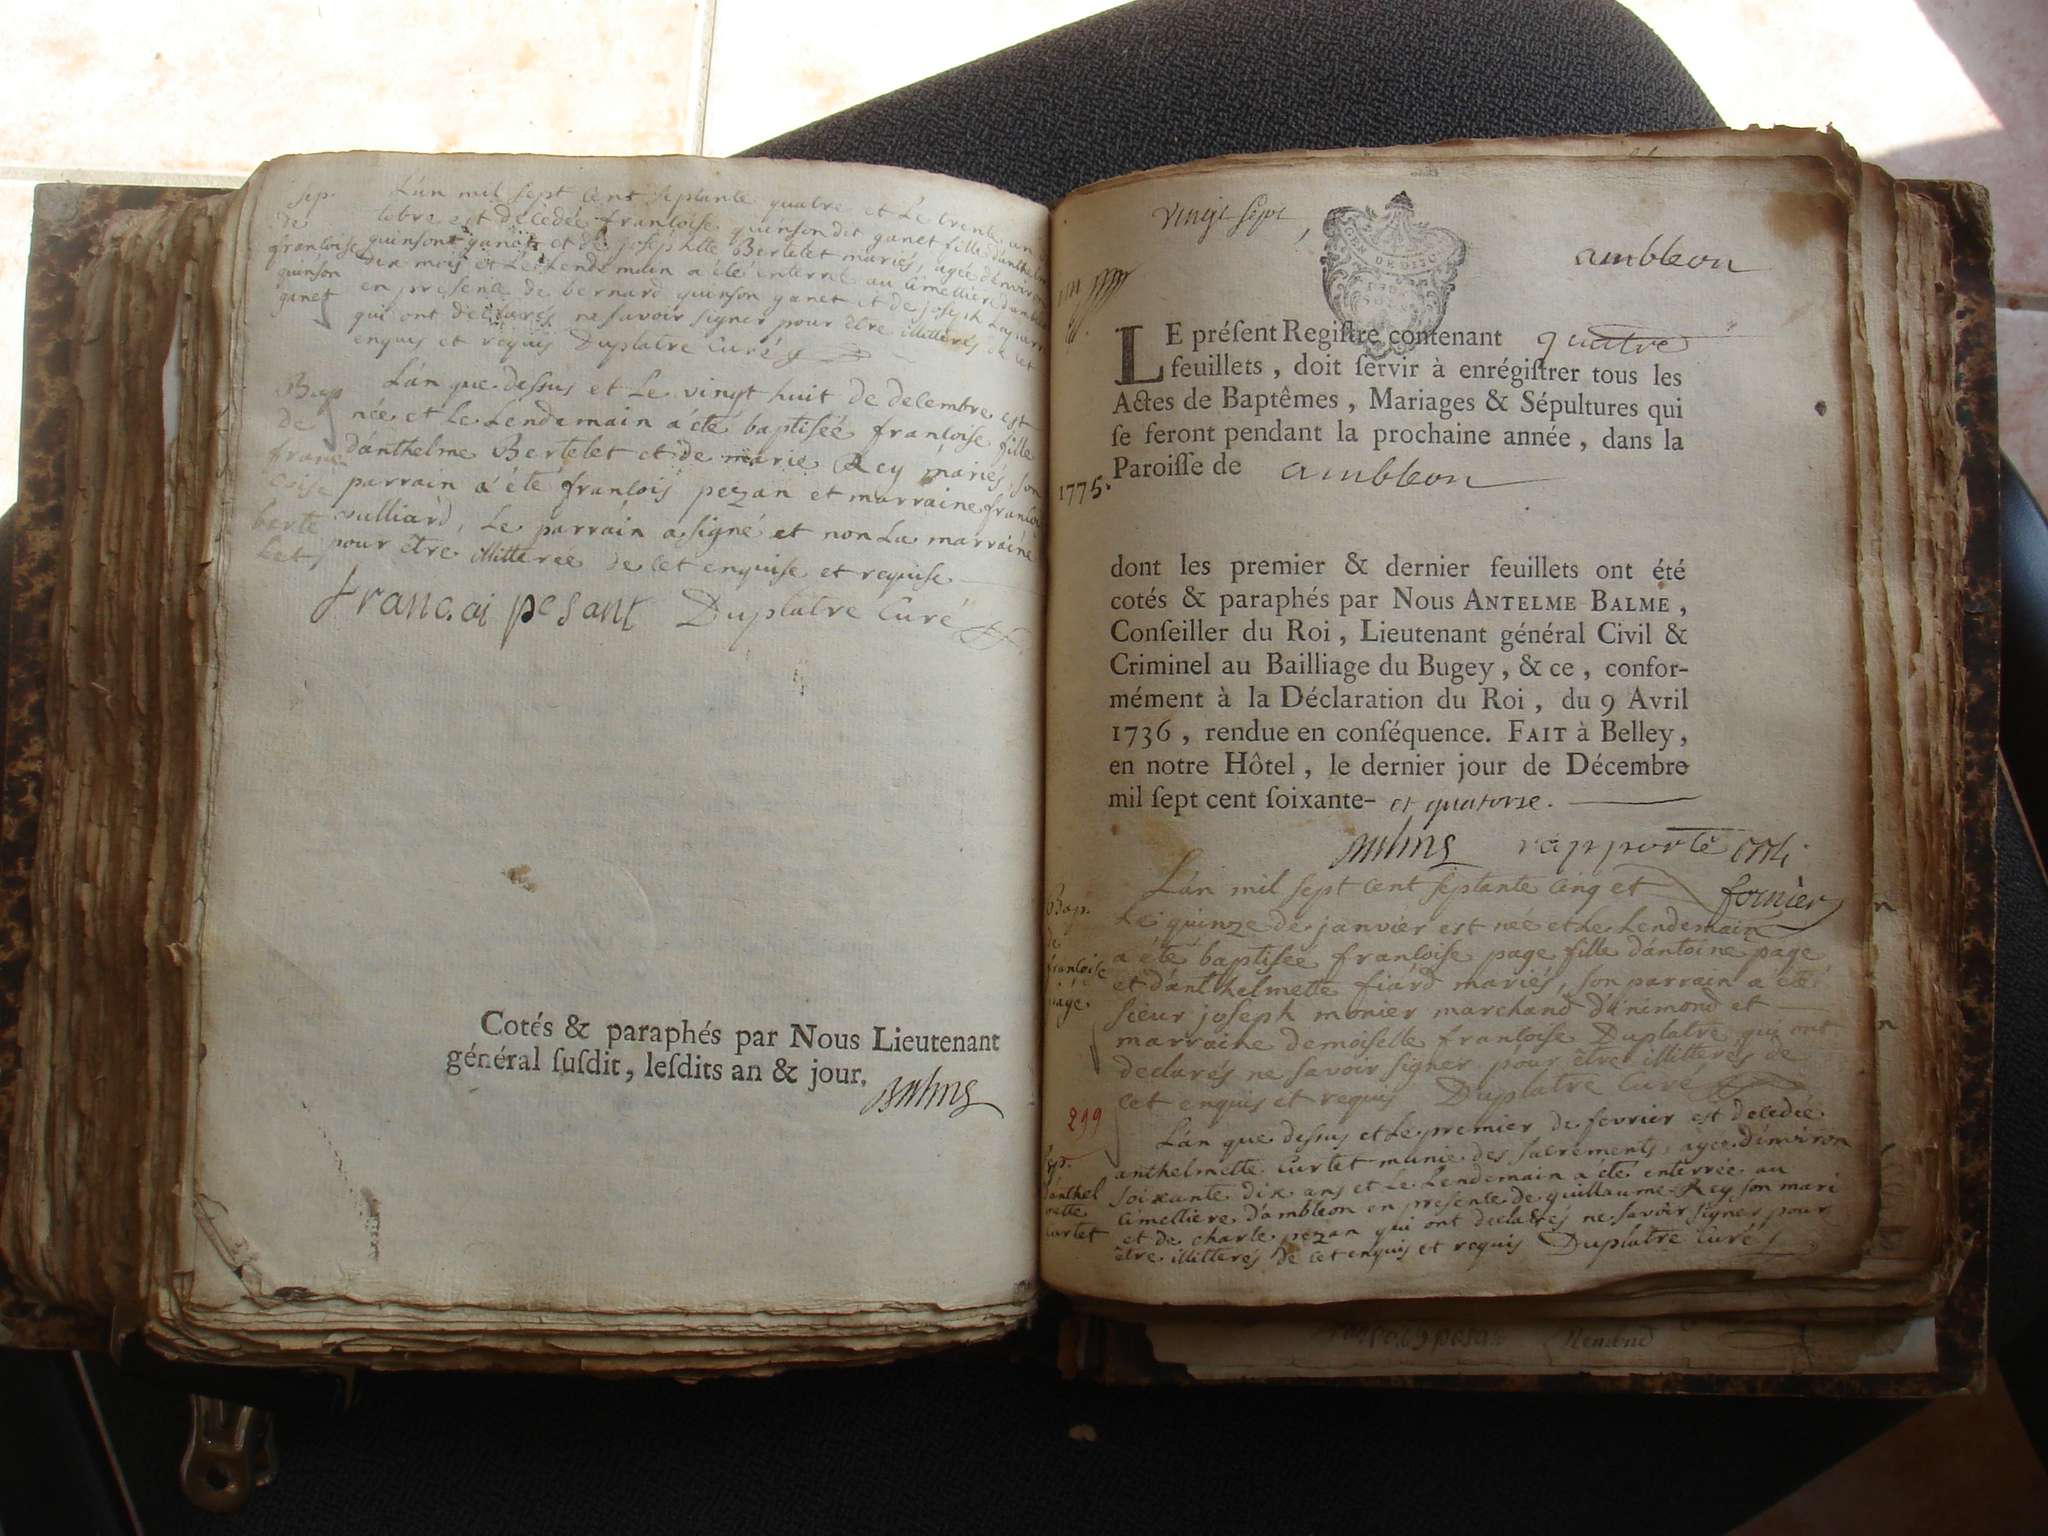 sep.
de
françoise
quinson
ganet
L'an mil sept cent septante quatre et Le trente un
tobre est décedée françoise quinson dit ganet fille d'anthelme
quinson ganet et de josephtte Bertelet mariés, agée d'environ
dix mois et Le Lendemain a été enterré au cimettiere d'ambleon
en presence de bernard quinson ganet et de joseph
qui ont déclarés ne savoir signer pour être illitterés de cet
enquis et requis Duplatre Curé
Bap
de
fran
coise
berte
let
L'an que dessus et Le vingt huit de decembre est
née et Le Lendemain a été baptisée françoise fille
d'anthelme Bertelet et de marie Rey mariés, son
parrain a été françois pezan et marraine françoi
vulliard, Le parrain a signé et non La marraine
pour être illitterée de cet enquise et requise
francai pesant Duplatre Curé
Cotés & paraphés par Nous Lieutenant
général susdit, lesdits an & jour.
Balme
vingt sept
GEN DE DIJON
ambleon
LE présent Registre contenant quatre
feuillets, doit servir à enrégistrer tous les
Actes de Baptêmes, Mariages & Sépultures qui
se feront pendant la prochaine année, dans la
Paroisse de ambleon
1775.
dont les premier & dernier feuillets ont été
cotés & paraphés par Nous ANTELME BALME,
Conseiller du Roi, Lieutenant général Civil &
Criminel au Bailliage du Bugey, & ce, confor-
mément à la Déclaration du Roi, du 9 Avril
1736, rendue en conséquence. FAIT à Belley,
en notre Hôtel, le dernier jour de Décembre
mil sept cent soixante- et quatorse.
Balme rapporté
fornier
Bap.
de
françoise
page.
L'an mil sept cent septante cinq et
Le quinze de janvier est née et Le Lendemain
a été baptisée françoise page fille d'antoine page
et d'anthelmette fiard mariés, son parrain a été
sieur joseph monier marchand d'inimond et
marraine demoiselle françoise Duplatre qui ont
declarés ne savoir signer pour être illitterés de
cet enquis et requis Duplatre Curé
299
sep.
d'anthel
mette
Curtet
L'an que dessus et Le premier de fevrier est decedée
anthelmette Curtet munie des sacrements, agée d'environ
soixante dix ans et Le Lendemain a été enterrée au
cimettiere d'ambleon en presence de guillaume Rey son mari
et de charle pezan qui ont declarés ne savoir signer pour
être illitterés de cet enquis et requis Duplatre Curé